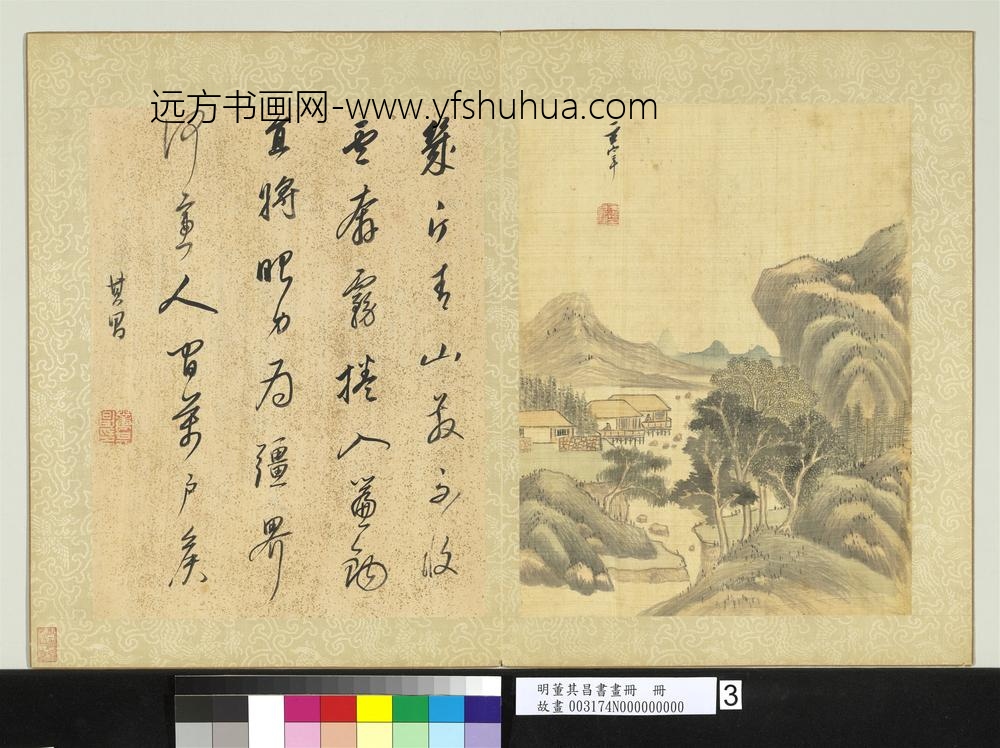 远方书画网-www.yfshuhua.com
幾片青山散不收
雲奔霧捲入簷鉤
直將眼力為疆界
何啻人間萬戶矦
其昌
玄宰
明董其昌書畫冊　冊
故畫 003174N000000000
3